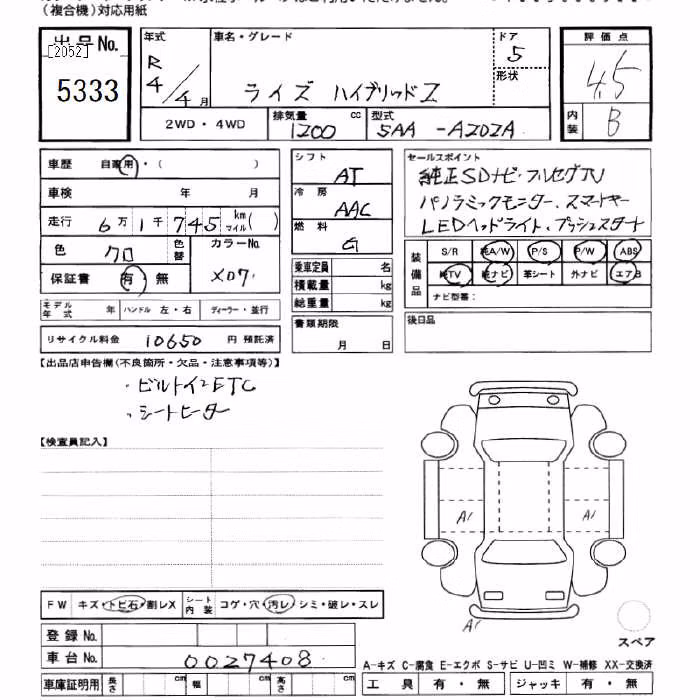 （複合機）対応用紙
出品No.
[2052]
5333
年式
R
4/4月
車名・グレード
ライズ ハイブリッドZ
ドア
5
形状
評価点
4.5
内装
B
2WD・4WD
排気量 cc
1200
型式
5AA -A202A
車歴 自家用・( )
車検 年 月
走行 6万1千745 km マイル( )
色 クロ
色替
カラーNo.
X07
保証書 有・無
モデル年式 年 ハンドル 左・右 ディーラー・並行
リサイクル料金 10650 円 預託済
シフト
AT
冷房
AAC
燃料
G
乗車定員 名
積載量 kg
総重量 kg
書類期限
月 日
セールスポイント
純正SDナビ・フルセグTV
パノラミックモニター、スマートキー
LEDヘッドライト、プッシュスタート
装備品
S/R 純A/W P/S P/W ABS
純TV 純ナビ 革シート 外ナビ エアB
ナビ型番：
後日品
【出品店申告欄(不良箇所・欠品・注意事項等)】
・ビルトインETC
・シートヒーター
【検査員記入】
A1
A1
A1
スペア
FW キズ・トビ石・割レX シート内装 コゲ・穴・汚レ・シミ・破レ・スレ
登録No.
車台No. 0027408
車庫証明用 長さ cm 幅 cm 高さ cm
A-キズ C-腐食 E-エクボ S-サビ U-凹ミ W-補修 XX-交換済
工具 有・無 ジャッキ 有・無